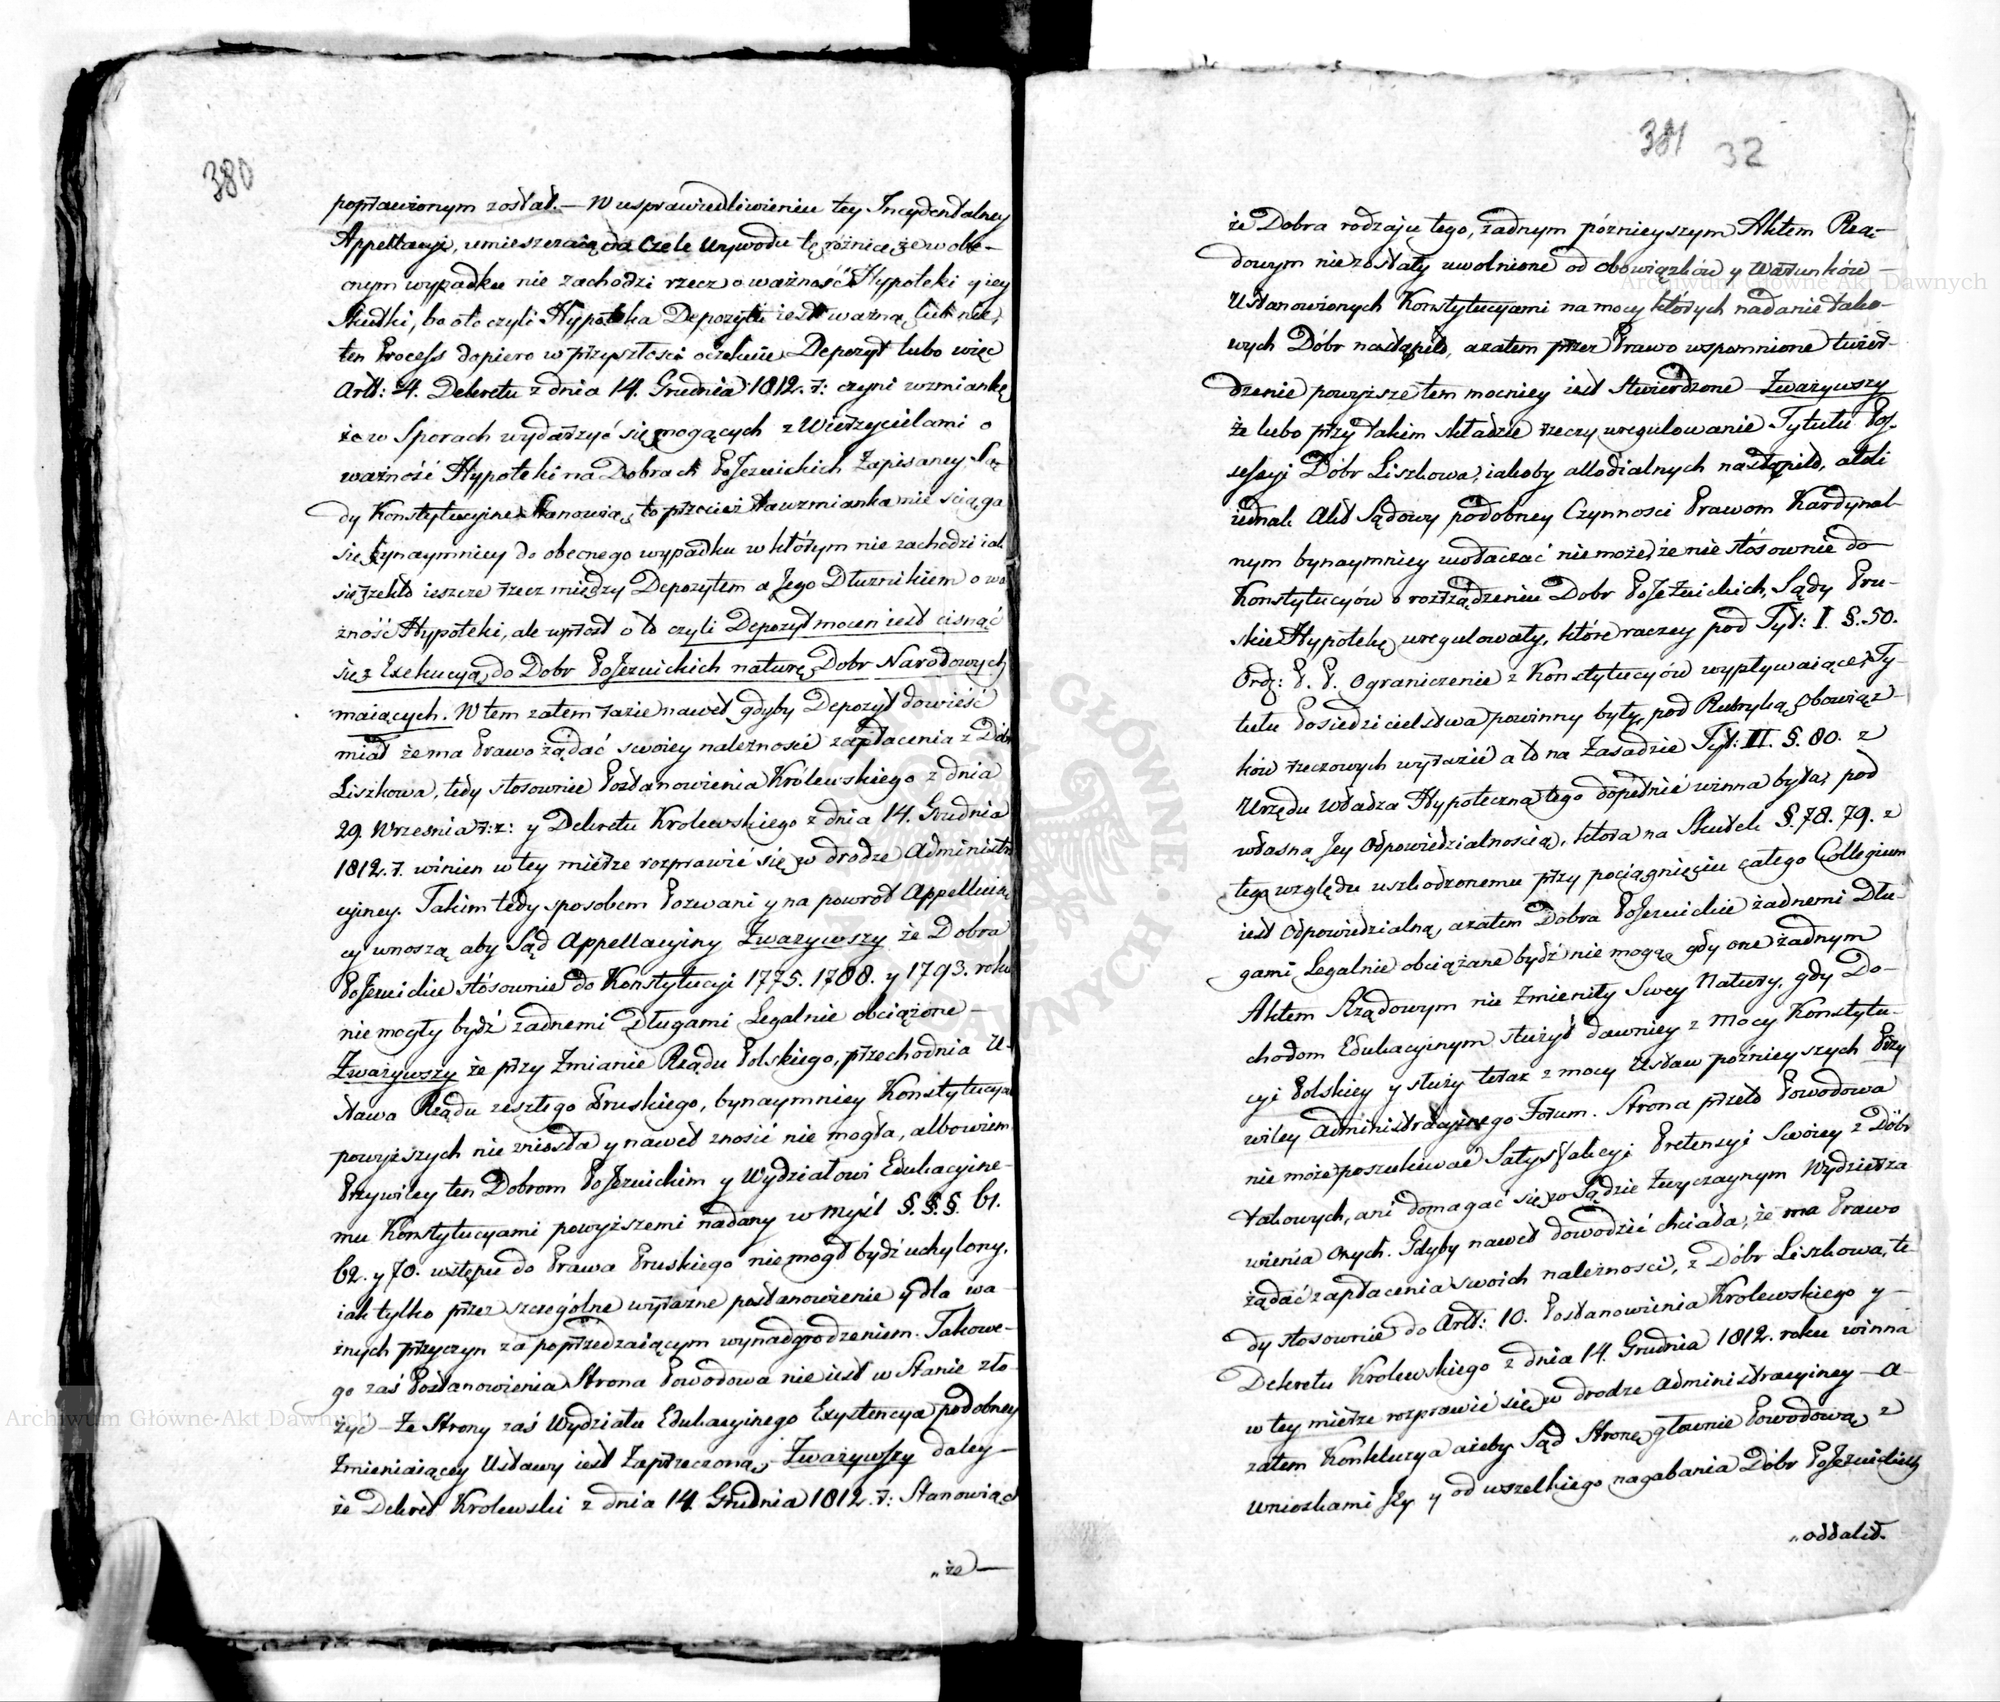 380
poprawionym został. — W usprawiedliwieniu tey Incydentalney
Appellacyi, umieszczaią na Czele Wywodu tę różnicę, że w obe-
cnym wypadku nie zachodzi rzecz o ważność Hypoteki y iey
Skutki, bo oto czyli Hypoteka Depozytu iest ważną lub nie,
ten Process dopiero w przyszłosci oczekuie Depozyt lubo więc
Artt: 4. Dekretu z dnia 14. Grudnia 1812. r: czyni wzmiankę
że w Sporach wydarzyć się mogących z Wierzycielami o
ważność Hypoteki na Dobrach PoJezuickich Zapisaney Są-
dy Konstytucyine Stanowią, to przecież ta wzmianka nie sciąga
się bynaymniey do obecnego wypadku w którym nie zachodzi iak
się rzekło ieszcze rzecz między Depozytem a Jego Dłużnikiem o wa
żność Hypoteki, ale wprost o to czyli Depozyt mocen iest cisnąć
się z Exekucyą do Dobr PoJezuickich naturę Dobr Narodowych
maiących. W tem zatem razie nawet gdyby Depozyt dowieść
miał że ma Prawo żądać swoiey należnosci zapłacenia z Dóbr
Liszkowa, tedy stosownie Postanowienia Królewskiego z dnia
29. Wrzesnia r: z: y Dekretu Krolewskiego z dnia 14. Grudnia
1812. r. winien w tey mierze rozprawić się w drodze Administra
cyiney. Takim tedy sposobem Pozwani y na powrót Appelluią
cy wnoszą aby Sąd Appellacyiny Zważywszy że Dobra
PoJezuickie stósownie do Konstytucyi 1775. 1788. y 1793. roku
nie mogły bydź żadnemi Długami Legalnie obciążone —
Zważywszy że przy Zmianie Rządu Polskiego, przechodnia U-
stawa Rządu zeszłego Pruskiego, bynaymniey Konstytucya
powyższych nie zniosła y nawet znosić nie mogła, albowiem
Przywiley ten Dobrom PoJezuickim y Wydziałowi Edukacyine-
mu Konstytucyami powyższemi nadany w myśl §. §. §. 61.
62. y 70. wstępu do Prawa Pruskiego nie mogł bydź uchylony,
iak tylko przez szczególne wyraźne postanowienie y dla wa-
żnych przyczyn za poprzedzaiącym wynadgrodzeniem. Takowe-
go zaś Postanowienia Strona Powodowa nie iest w Stanie zło-
żyć — Ze Strony zaś Wydziału Edukacyinego Exystencya podobney
Zmieniaiącey Ustawy iest Zaprzeczoną, Zważywszy daley —
że Dekret Krolewski z dnia 14. Grudnia 1812. r: Stanowiąc
„że —
381 32
że Dobra rodzaju tego, żadnym póznieyszym Aktem Rzą-
dowym nie zostały uwolnione od obowiązków y Warunków —
Ustanowionych Konstytucyami na mocy których nadanie tako-
wych Dóbr nastąpiło, azatem przez Prawo wspomnione twier-
dzenie powyższe tem mocniey iest Stwierdzone Zważywszy
że lubo przy takim składzie rzeczy uregulowanie Tytułu Pos-
sessyi Dóbr Liszkowa, iakoby allodialnych nastąpiło, atoli
iednak Akt Sądowy podobney Czynnosci Prawom Kardynal-
nym bynaymniey uwłaczać nie może, że nie stósownie do —
Konstytucyów o rozrządzeniu Dobr PoJezuickich, Sądy Pru-
skie Hypotekę uregulowały, które raczey pod Tyt: I. §. 50.
Ordz: P. P. Ograniczenie z Konstytucyów wypływaiące Ty-
tułu Posiedzicielstwa powinny były, pod Rubryką Obowiąz-
ków rzeczowych wyrazić a to na Zasadzie Tyt: II. §. 80. z
Urzędu Władza Hypoteczna tego dopełnić winna była, pod
własną Jey Odpowiedzialnoscią, ktora na Skutek §. 78. 79. z
tego względu uszkodzonemu przy pociągnięciu całego Collegium
iest Odpowiedzialną, azatem Dobra PoJezuickie żadnemi Dłu-
gami Legalnie obciążane bydź nie mogą, gdy one żadnym
Aktem Rządowym nie Zmieniły Swey Natury, gdy Do-
chodom Edukacyinym służył dawniey z Mocy Konstytu-
cyi Polskiey y służy teraz z mocy Ustaw poźnieyszych Przy
wiley Administracyinego Forum. Strona przeto Powodowa
nie może poszukiwać Satysfakcyi Pretensyi Swoiey z Dóbr
takowych, ani domagać się w Sądzie Zwyczaynym Wydzierża
wienia Onych. Gdyby nawet dowodzić chciała, że ma Prawo
żądać zapłacenia swoich należnosci, z Dóbr Liszkowa, te-
dy stosownie do Artt: 10. Postanowienia Krolewskiego y —
Dekretu Krolewskiego z dnia 14. Grudnia 1812. roku winna
w tey mierze rozprawić się w drodze Administracyiney — A-
zatem Konkluzya ażeby Sąd Stronę głównie Powodową z
Wnioskami Jey y od wszelkiego nagabania Dóbr PoJezuickich
„oddalił.
Archiwum Główne Akt Dawnych
Archiwum Główne Akt Dawnych